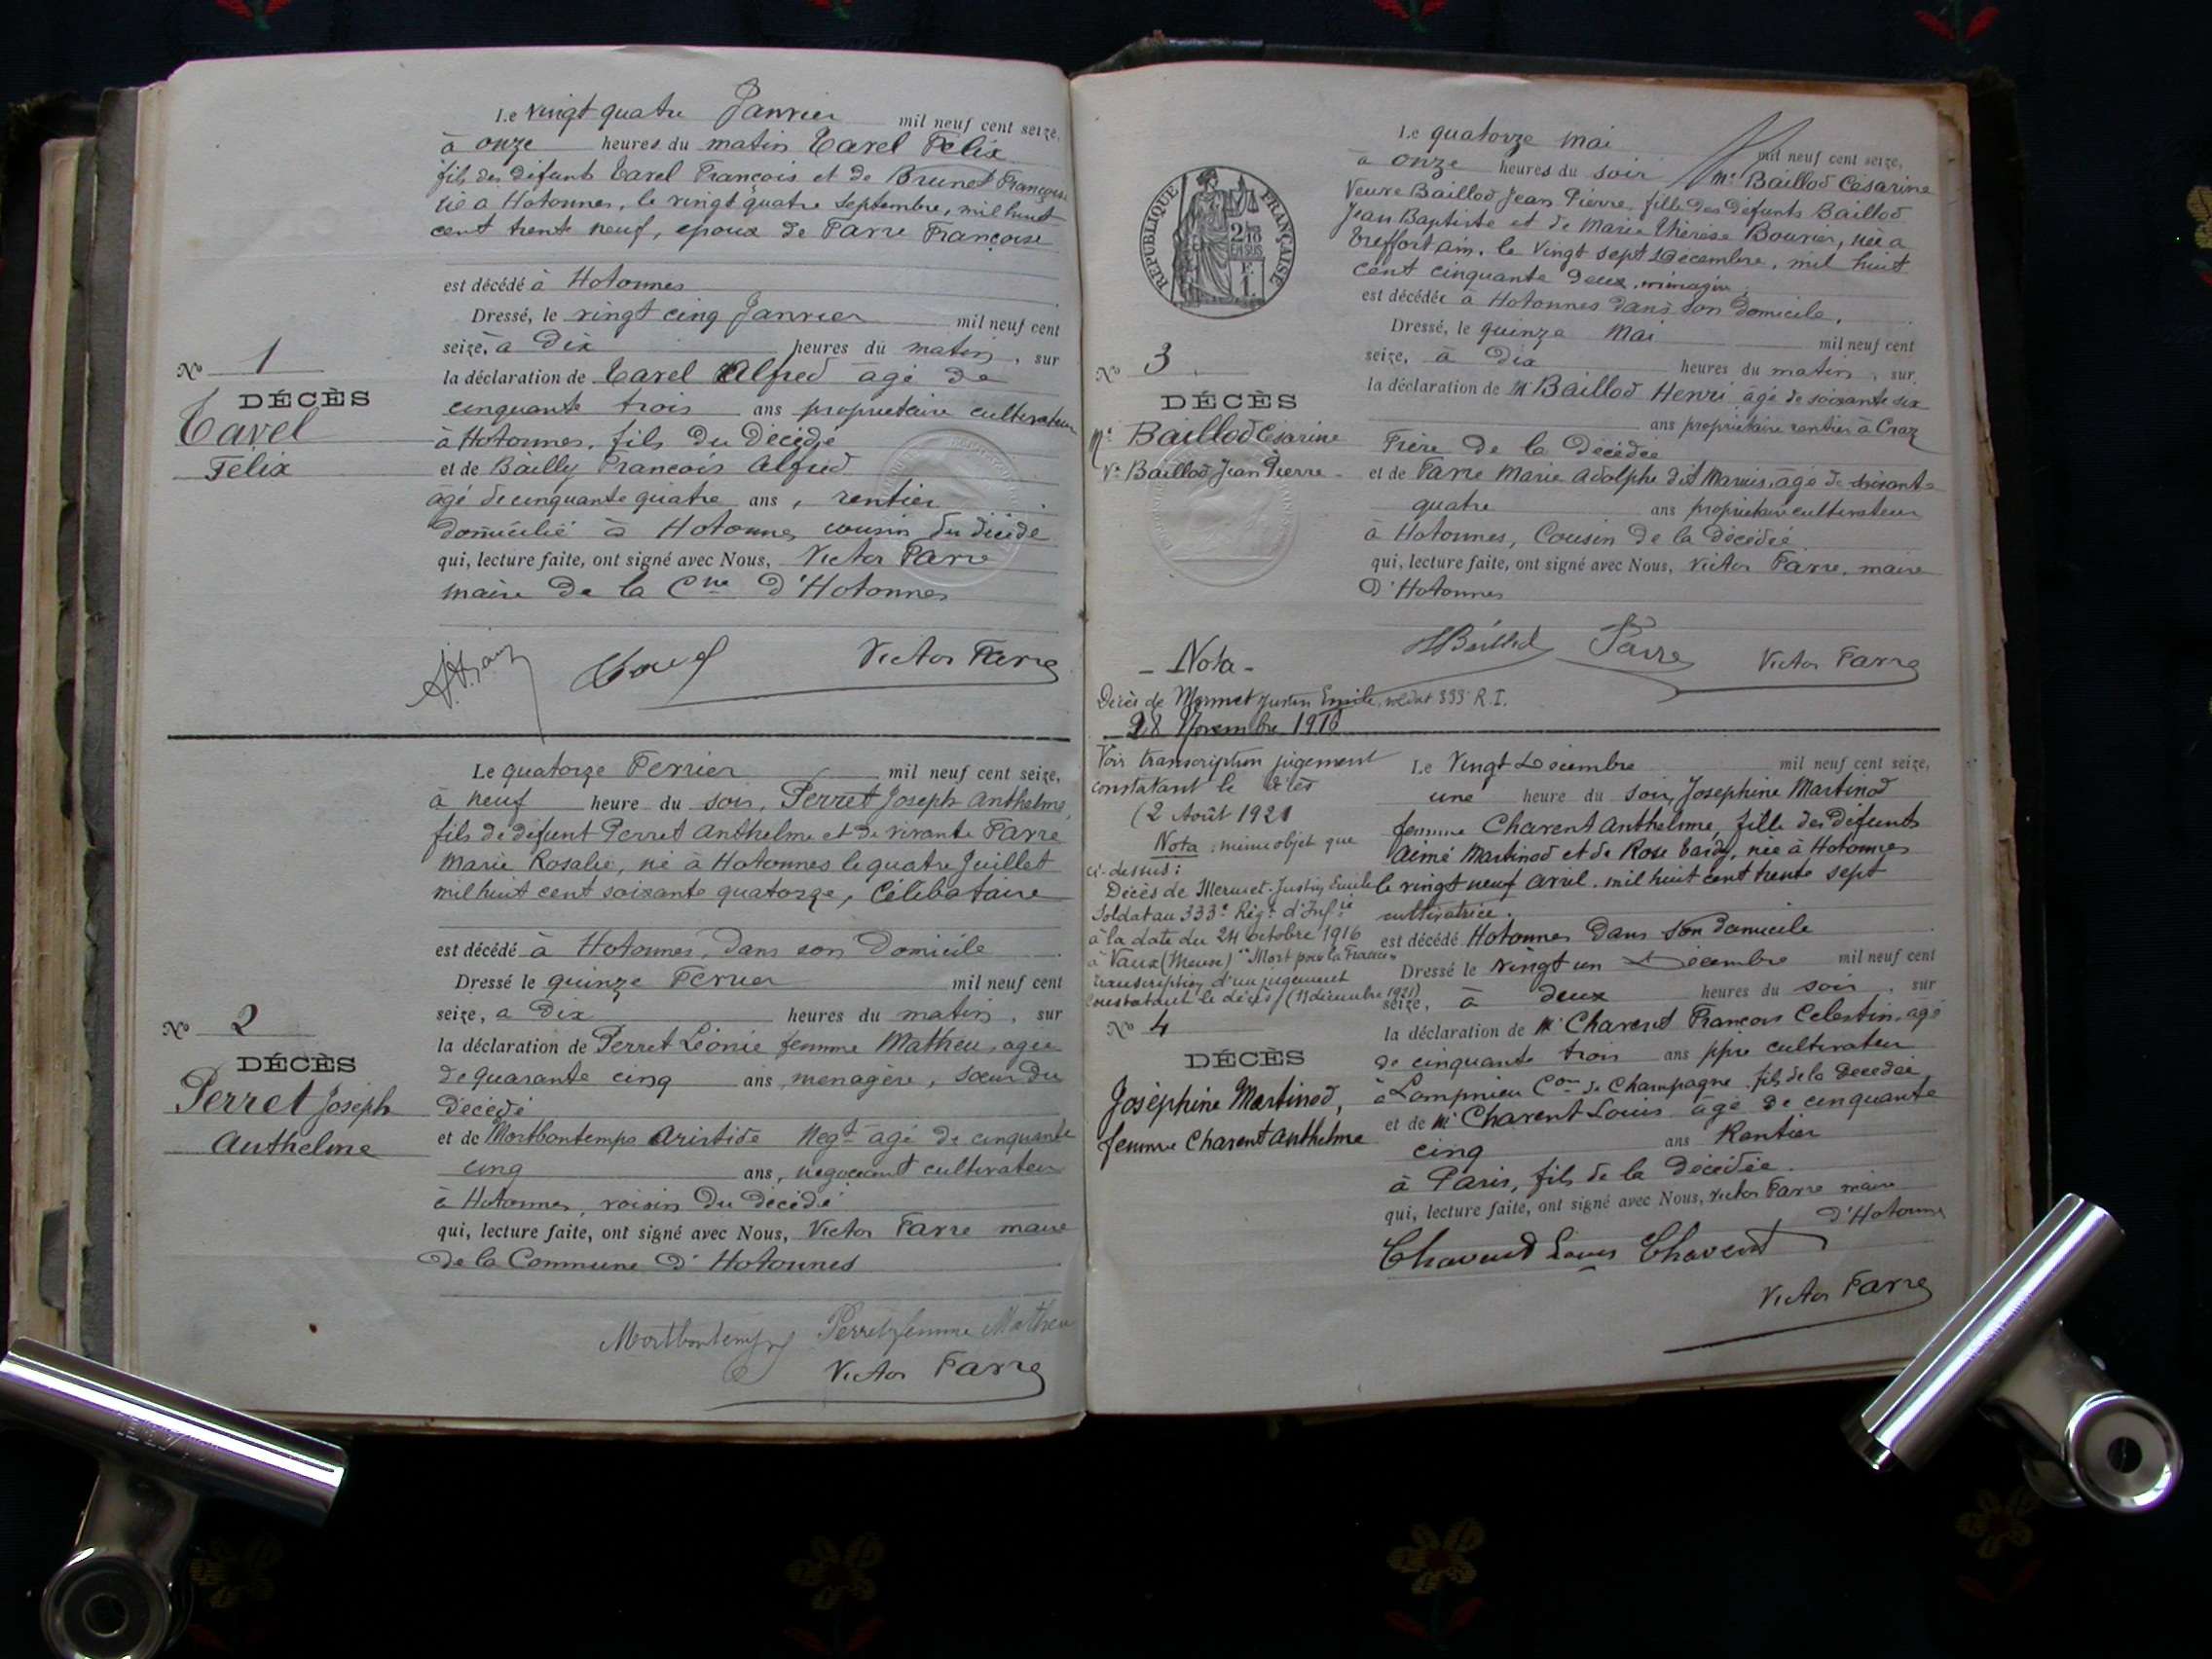 Le vingt quatre Janvier mil neuf cent seize,
à onze heures du matin Tavel Felix
fils des défunts Tavel François et de Brunet Françoise
né à Hotonnes, le vingt quatre Septembre, mil huit
cent trente neuf, epoux de Favre Françoise
est décédé à Hotonnes
Dressé, le vingt cinq Janvier mil neuf cent
seize, à Dix heures du matin, sur
la déclaration de Tavel Alfred agé de
cinquante trois ans propriétaire cultivateur
à Hotonnes, fils du Décédé
et de Bailly François Alfred
âgé de cinquante quatre ans, rentier
domicilié à Hotonnes cousin du décédé
qui, lecture faite, ont signé avec Nous, Victor Favre
maire de la Cne d'Hotonnes
No 1
DÉCÈS
Tavel
Felix
Tavel
Victor Favre
Le quatorze Fevrier mil neuf cent seize,
à neuf heure du soir, Perret Joseph Anthelme,
fils de défunt Perret Anthelme et de vivante Favre
Marie Rosalie, né à Hotonnes le quatre Juillet
mil huit cent soixante quatorze, Célibataire
est décédé à Hotonnes, dans son Domicile
Dressé le quinze Fevrier mil neuf cent
seize, a Dix heures du matin, sur
la déclaration de Perret Léonie femme Matheu, agée
de quarante cinq ans, menagère, sœur du
décédé
et de Montbontemps Aristide Negt âgé de cinquante
cinq ans, negociant cultivateur
à Hotonnes, voisin du décédé
qui, lecture faite, ont signé avec Nous, Victor Favre maire
de la Commune d'Hotonnes
No 2
DÉCÈS
Perret Joseph
Anthelme
Montbontemps Perret femme Matheu
Victor Favre
RÉPUBLIQUE FRANÇAISE
2/10
EN SUS
F.
1.
Le quatorze mai mil neuf cent seize,
à onze heures du soir Me Baillod Césarine
Veuve Baillod Jean Pierre, fille des défunts Baillod
Jean Baptiste et de Marie Thérèse Bouvier, née a
Treffort Ain, le Vingt sept Décembre, mil huit
cent cinquante deux, ménagère,
est décédée à Hotonnes dans son domicile,
Dressé, le quinze Mai mil neuf cent
seize, à Dix heures du matin, sur
la déclaration de Mr Baillod Henri âgé de soixante six
ans propriétaire rentier à Craz
Frère de la Décédée
et de Favre Marie Adolphe dit Marius, âgé de soixante
quatre ans propriétaire cultivateur
à Hotonnes, Cousin de la décédée
qui, lecture faite, ont signé avec Nous, Victor Favre, maire
D'Hotonnes
No 3
DÉCÈS
Me Baillod Césarine
Ve Baillod Jean Pierre
HBaillod Favre Victor Favre
- Nota -
Décès de Mermet Justin Emile, soldat 333e R.I.
28 Novembre 1916
Voir transcription jugement
constatant le décès
(2 Août 1921
Nota : même objet que
ci-dessus :
Décès de Mermet Justin Emile
Soldat au 333e Régt d'Infrie
à la date du 24 octobre 1916
à Vaux (Meuse) "Mort pour la France"
transcription d'un jugement
constatant le décès / (11 décembre 1921)
Le Vingt Décembre mil neuf cent seize,
une heure du soir, Josephine Martinod
femme Charent Anthelme, fille des Défunts
Aimé Martinod et de Rose Tardy, née à Hotonnes
le vingt neuf avril, mil huit cent trente sept
cultivatrice.
est décédé Hotonnes dans son domicile
Dressé le vingt un Décembre mil neuf cent
seize, à deux heures du soir, sur
la déclaration de Mr Charent François Celestin, agé
de cinquante trois ans ppre cultivateur
à Lompnieu Con de Champagne, fils de la Décédée
et de Mr Charent Louis âgé de cinquante
cinq ans Rentier
à Paris, fils de la décédée.
qui, lecture faite, ont signé avec Nous, Victor Favre maire
d'Hotonnes
No 4
DÉCÈS
Joséphine Martinod,
femme Charent Anthelme
Charent Louis Charent
Victor Favre